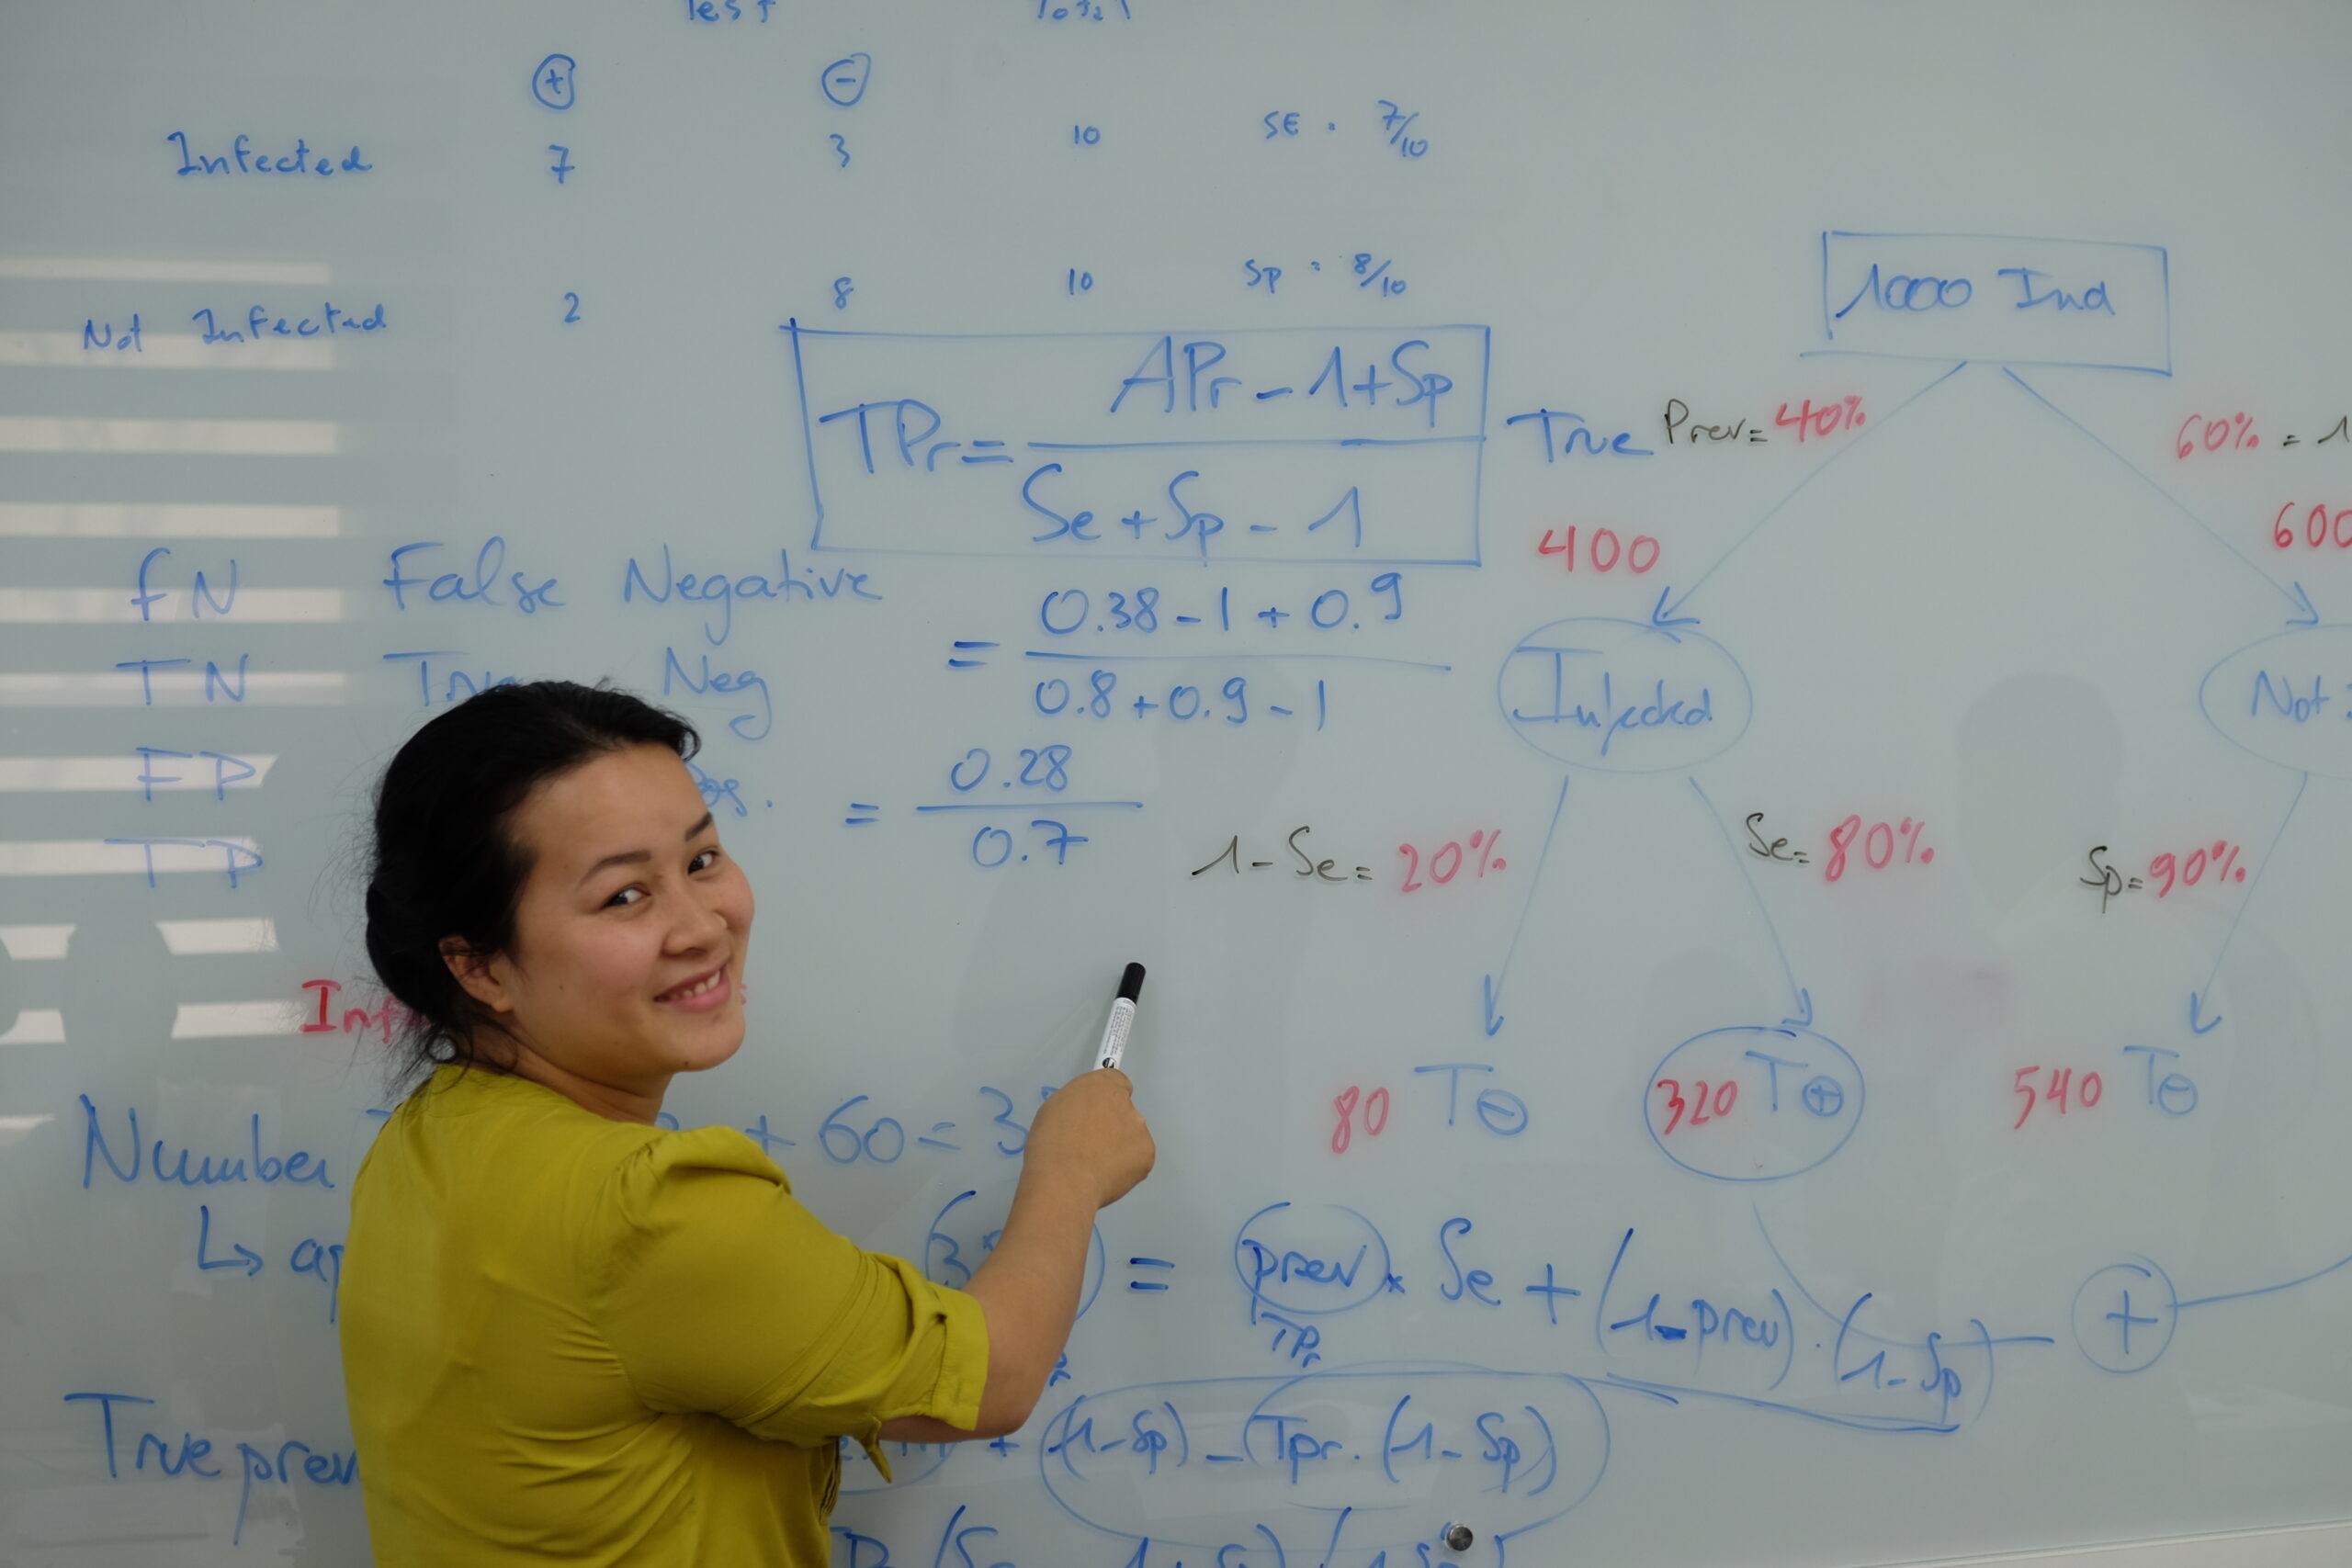 Test Total
⊕ ⊖
Infected 7 3 10 SE = 7/10
Not Infected 2 8 10 Sp = 8/10
TPr = (APr - 1 + Sp) / (Se + Sp - 1)
= (0.38 - 1 + 0.9) / (0.8 + 0.9 - 1)
= 0.28 / 0.7
FN False Negative
TN Neg
FP
TP
Inf
Number + 60 = 3
↳ ap = prev × Se + (1-prev) . (1-Sp)
TPr
True prev + (1-Sp) - Tpr. (1-Sp)
1000 Ind
True Prev= 40%
60% = 1
400
600
Infected
Not
1-Se= 20%
Se= 80%
Sp= 90%
80 T⊖
320 T⊕
540 T⊖
+